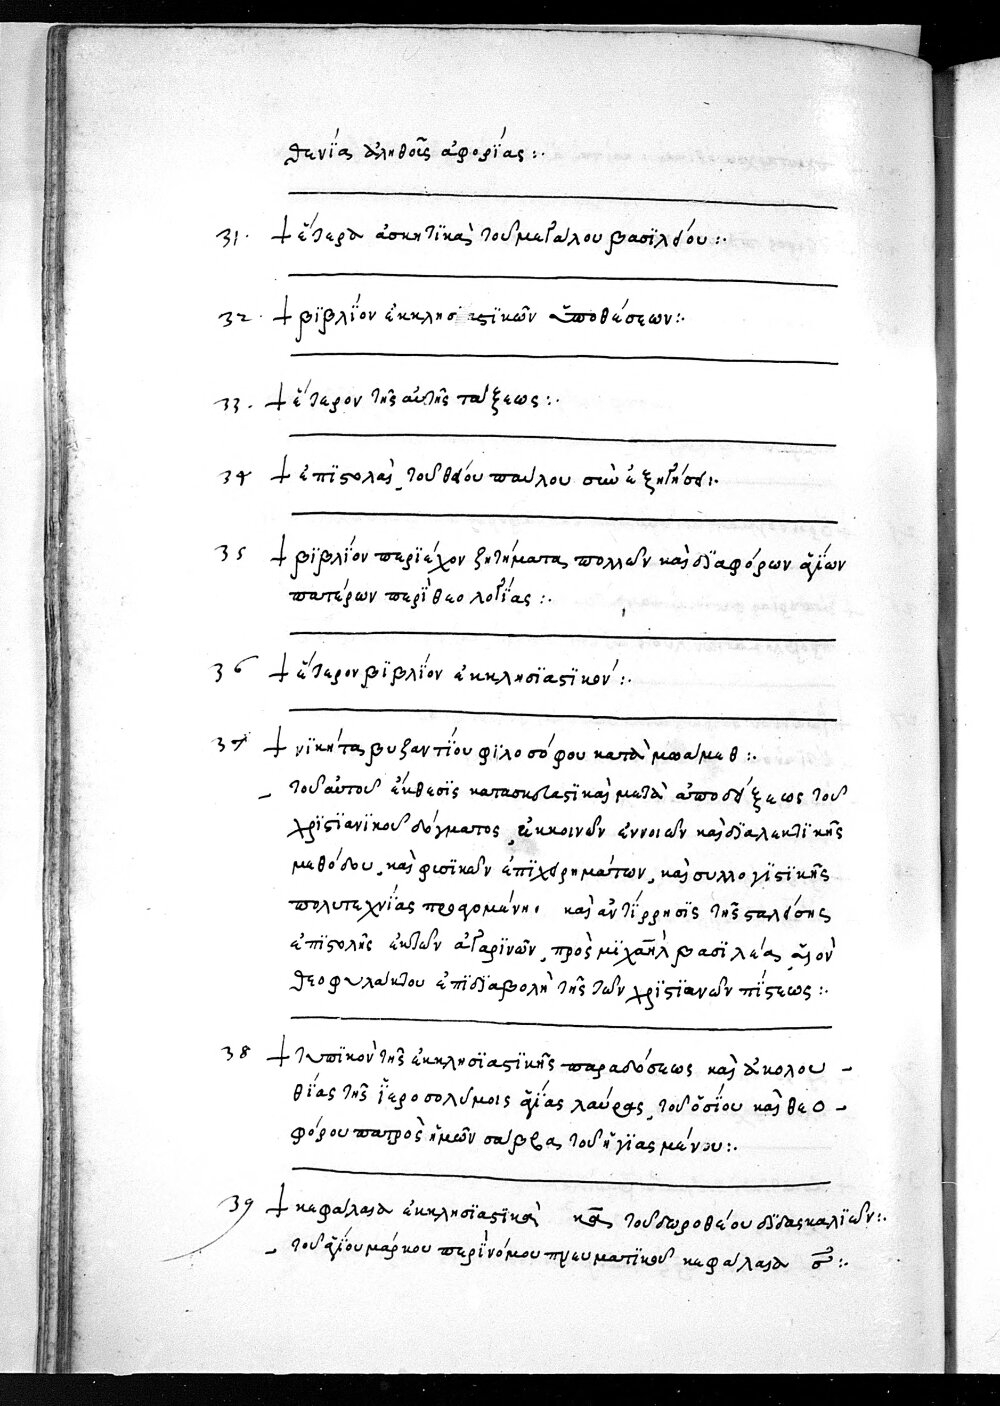 θενίας ἀληθοῦς ἀφορίας :·
31. † ἕτερα ἀσκητϊκὰ τοῦ μεγάλου βασϊλείου :·
32. † βϊβλΐον ἐκκλησϊαστϊκῶν ὑποθέσεων :·
33. † ἕτερον τῆς αὐτῆς τάξεως :·
34 † ἐπϊστολαὶ τοῦ θείου παύλου σὺν ἐξηγήσει :·
35 † βϊβλΐον περϊέχον ζητήματα πολλῶν καὶ δϊαφόρων ἁγΐων
πατέρων περὶ θεολογΐας :·
36 † ἕτερον βϊβλΐον ἐκκλησϊαστϊκόν :·
37 † νϊκήτα βυζαντΐου φϊλοσόφου κατὰ μωάμεθ :·
– τοῦ αὐτοῦ ἔκθεσϊς κατασκευαστϊκὴ μετὰ ἀποδείξεως τοῦ
χρϊστϊανϊκοῦ δόγματος, ἐκ κοινῶν ἐννοιῶν καὶ δϊαλεκτϊκῆς
μεθόδου, καὶ φυσϊκῶν ἐπϊχειρημάτων, καὶ συλλογϊστϊκῆς
πολυτεχνΐας προαγομένη· καὶ ἀντΐρρησϊς τῆς σταλείσης
ἐπϊστολῆς ἐκ τῶν ἀγαρϊνῶν, πρὸς μϊχαὴλ βασϊλέα, υἱὸν
θεοφυλάκτου ἐπὶ δϊαβολῇ τῆς τῶν χρϊστϊανῶν πΐστεως :·
38 † τυπϊκὸν τῆς ἐκκλησϊαστϊκῆς παραδόσεως καὶ ἀκολου –
θΐας τῆς ἱεροσολύμοις ἁγΐας λαύρας, τοῦ ὁσΐου καὶ θεο –
φόρου πατρὸς ἡμῶν σάββα τοῦ ἡγϊασμένου :·
39 † κεφάλαια ἐκκλησϊαστϊκὰ κδ τοῦ δωροθέου δϊδασκαλϊῶν :·
– τοῦ ἁγΐου μάρκου περὶ νόμου πνευματϊκοῦ κεφάλαια σ :·